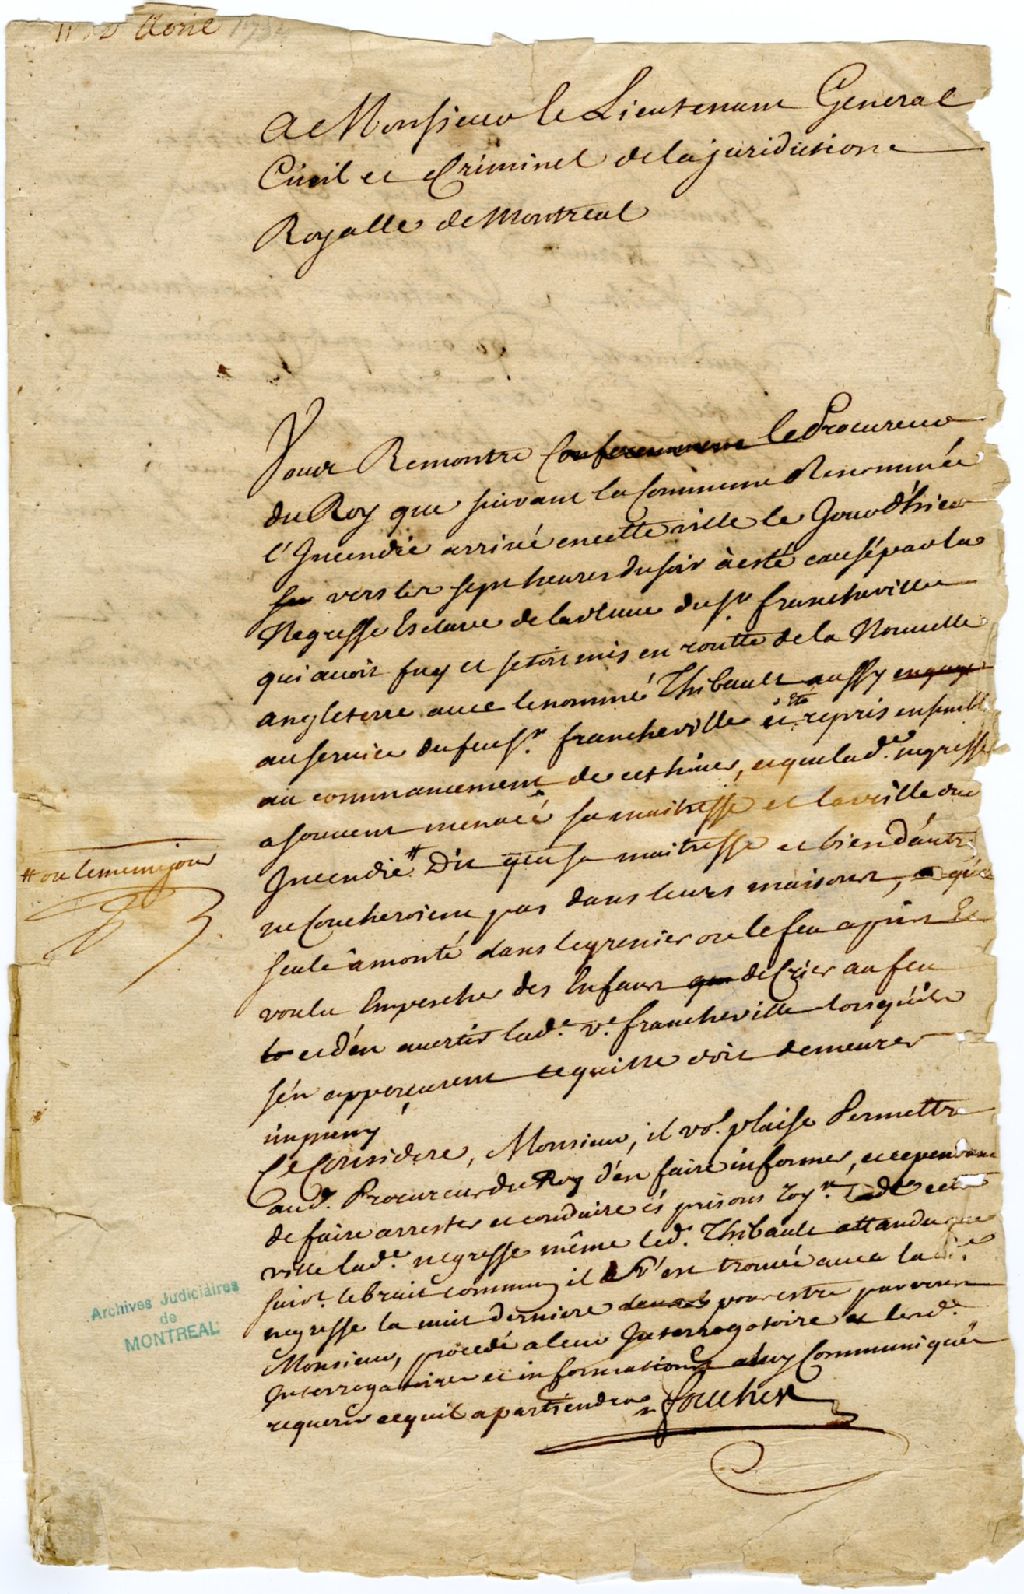 11 Avril 1734
A Monsieur le Lieutenant General
Civil et Criminel de la juridiction
Royalle de Montreal
Vous Remontre Conformement le Procureur
du Roy que suivant la Commune Renommée
l'Incendie arrivé en cette ville le Jour d'hier
sur vers les sept heures du soir à esté causé par la
Negresse Esclave de la veuve du Sr. francheville
qui avoit fuy et s'etoit mis en routte de la Nouvelle
angleterre avec le nommé Thibault aussy engagé
au service du feu Sr. francheville et esté repris ensemble
au commancement de cet hiver, et que lad.e negresse
a souvent menacé sa maitresse et la veille du
#ou le meme jour
Incendie # Dit que sa maitresse et bien d'autres
ne Coucheroient pas dans leurs maisons, qu'
seule à monté dans le grenier ou le feu a pris Et
voulu Empescher des Enfans que de Crier au feu
et d'en avertir lad.e v.e francheville lorsqu'ils
s'en apperçurent ce qui ne doit demeurer
impuny
Ce Consideré, Monsieur, il vo.s plaise Permettre
aud. Procureur du Roy d'en faire informer, et cependant
de faire arrester et conduire és prisons roy.lles de cette
ville lad.e negresse même led. Thibault attandu que
suiv.t le bruit commun il s'est trouvé avec lad.e
negresse la nuit derniere pour estre par vous
Monsieur, procédé a leur Interrogatoire et lesd.
Interrogatoires et informations a luy Communiqués
requerir ce qu'il apartiendra
foucher
Archives Judiciaires
de
MONTREAL